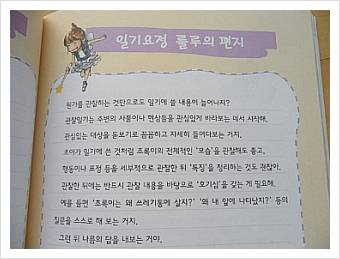 일기요정 룰루의 편지
뭔가를 관찰하는 것만으로도 일기에 쓸 내용이 늘어나지?
관찰일기는 주변의 사물이나 현상들을 관심있게 바라보는 데서 시작해.
관심있는 대상을 돋보기로 꼼꼼하고 자세히 들여다보는 거지.
초아가 일기에 쓴 것처럼 초록이의 전체적인 '모습'을 관찰해도 좋고,
행동이나 표정 등을 세부적으로 관찰한 뒤 '특징'을 정리하는 것도 괜찮아.
관찰한 뒤에는 반드시 관찰 내용을 바탕으로 '호기심'을 갖는 게 필요해.
예를 들면 '초록이는 왜 쓰레기통에 살지?' '왜 내 앞에 나타났지?' 등의
질문을 스스로 해 보는 거지.
그런 뒤 나름의 답을 내보는 거야.